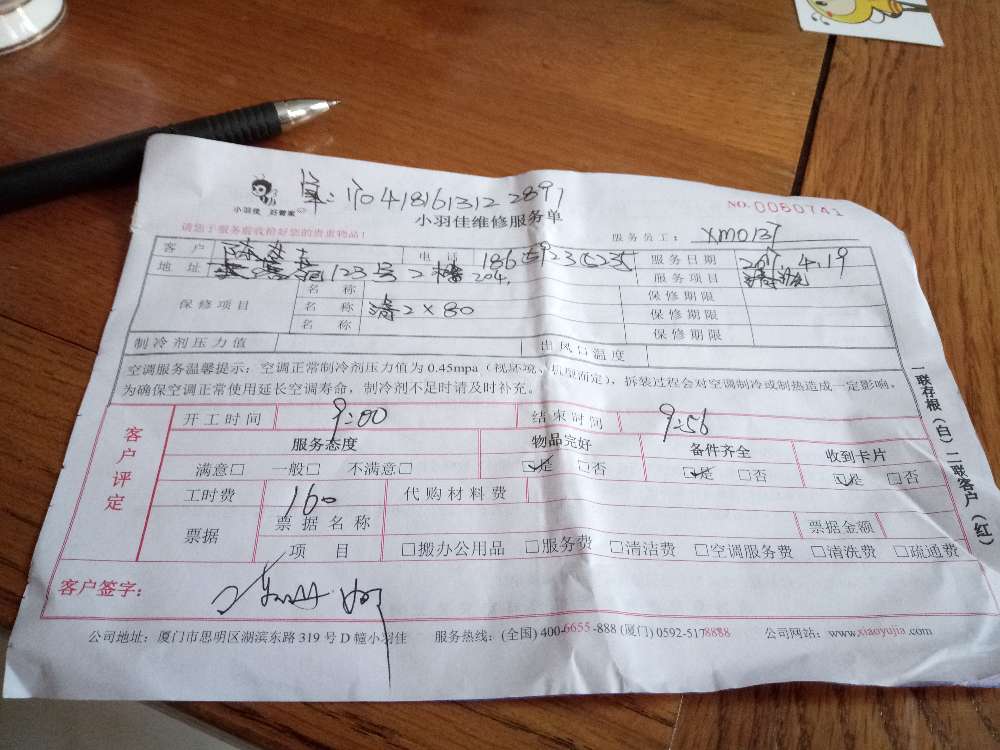 单:170418161312 2891
小羽佳 好管家
小羽佳维修服务单
NO.0050741
请您:服务前收拾好您的贵重物品!
服务员工: XM0137
客 户 陈 电 话 服务日期 2017.4.19
地 址 123号2楼204. 服务项目 清洗
保修项目 名 称 保修期限
名 称 清2×80 保修期限
名 称 保修期限
制冷剂压力值 出风口温度
空调服务温馨提示:空调正常制冷剂压力值为 0.45mpa(视环境、机型而定),拆装过程会对空调制冷或制热造成一定影响。
为确保空调正常使用延长空调寿命,制冷剂不足时请及时补充。
一联存根(白)二联客户(红)
客户评定
开工时间 9:00 结束时间 9:56
服务态度 物品完好 备件齐全 收到卡片
满意□ 一般□ 不满意□ ☑是 □否 ☑是 □否 ☑是 □否
工时费 160 代购材料费
票据 票 据 名 称 票据金额
项 目 □搬办公用品 □服务费 □清洁费 □空调服务费 □清洗费 □疏通费
客户签字:
公司地址:厦门市思明区湖滨东路 319 号 D 幢小羽佳 服务热线:(全国) 400-6655-888 (厦门) 0592-5178888 公司网站:www.xiaoyujia.com